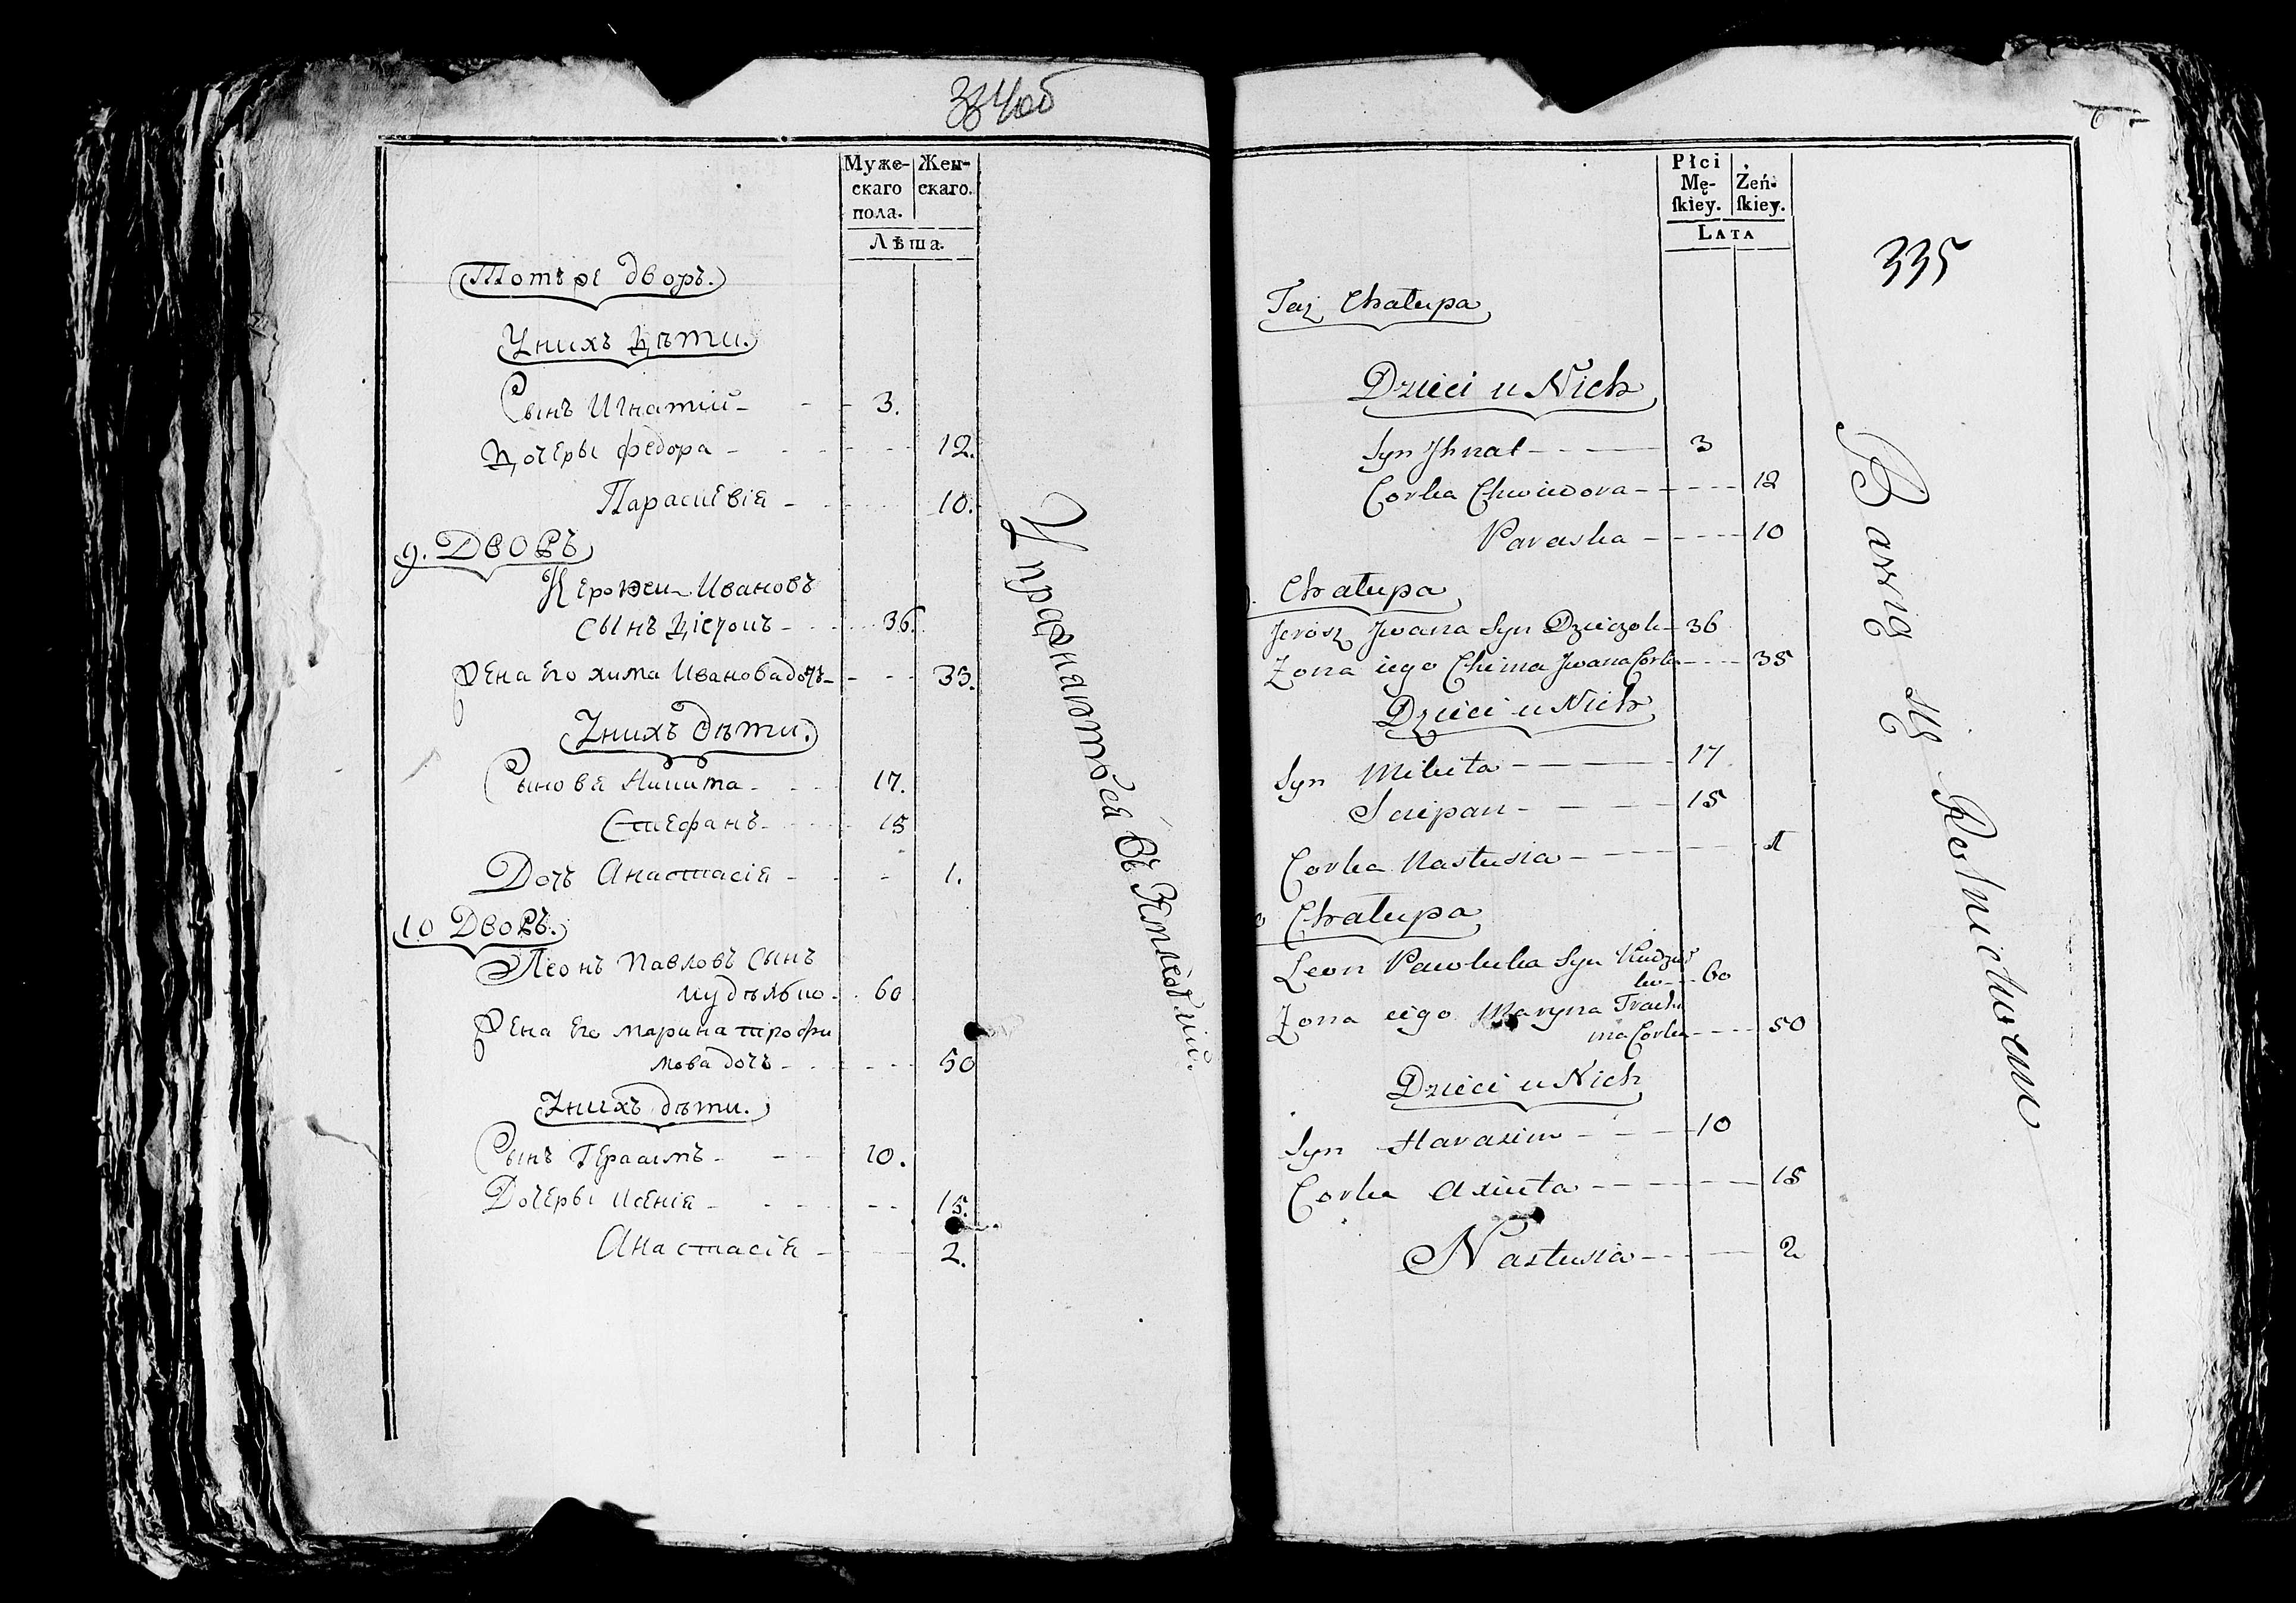 334об
Муже-
скаго
пола.
Жен-
скаго.
Лѣта.
Тотъ же дворъ.
У нихъ дѣти.
Сынъ Игнатий - 3.
Дочеры Федора - 12.
Параскевія - 10.
9. Дворъ
Ивановъ
сынъ - 36.
Жена его хима Иванова дочь - 35.
У нихъ дѣти.
Сыновя Никита - 17.
Стефанъ - 15
Дочь Анастасія - 1.
10 Дворъ.
Леонъ Павловъ Сынъ
60
Жена его марина трофи
мова дочь - 50
У нихъ дѣти.
Сынъ Герасимъ - 10.
Дочеры Ксенія - 15.
Анастасія - 2.
Упражняются въ
Płci
Mę-
skiey.
Żeń-
skiey.
LATA
335
Taż Chałupa
Dzieci u Nich
Syn Ihnat - 3
Corka Chwiedora - 12
Paraska - 10
Chałupa
Jerosz Jwana Syn - 36
Zona iego Chima Jwana Corka - 35
Dzieci u Nich
Syn Mikita - 17
Sciepan - 15
Corka Nastusia - 1
Chałupa
Leon Pawluka Syn
60
Zona iego Maryna Trachi
ma Corka - 50
Dzieci u Nich
Syn Harasim - 10
Corka Axiuta - 15
Nastusia - 2
Bawią się Rolnictwem